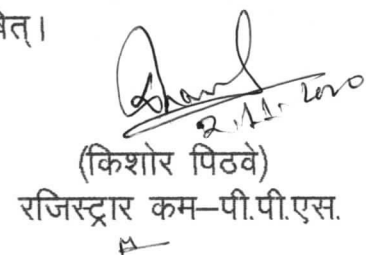 2.11.2020
(किशोर पिठवे)
रजिस्ट्रार कम–पी.पी.एस.